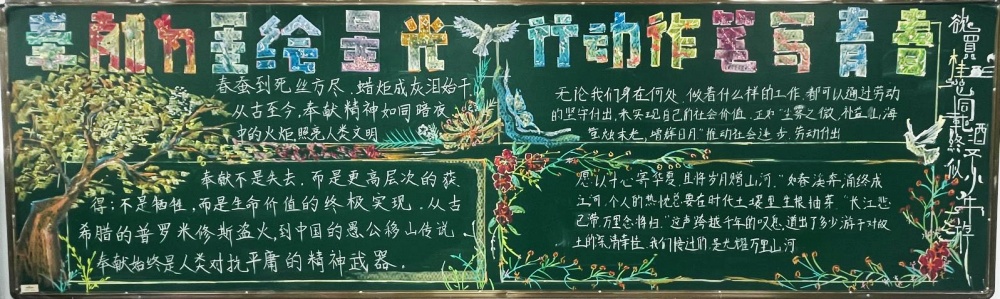 奉献为墨绘星光 行动作笔写青春
春蚕到死丝方尽,蜡炬成灰泪始干,
从古至今,奉献精神如同暗夜
中的火炬照亮人类文明
无论我们身在何处,做着什么样的工作,都可以通过劳动
的坚守付出,来实现自己的社会价值,正如"尘雾之微,补益山海,
萤烛末光,增辉日月"推动社会进步,劳动付出
奉献不是失去,而是更高层次的获
得;不是牺牲,而是生命价值的终极实现.从古
希腊的普罗米修斯盗火,到中国的愚公移山传说,
奉献始终是人类对抗平庸的精神武器.
愿以寸心寄华夏,且将岁月赠山河."如春溪奔涌终成
江河,个人的热忱总要在时代土壤里生根抽芽."长江悲
已滞,万里念将归."这声跨越千年的叹息,道出了多少游子对故
土的
我们接过的是光耀万里山河
欲買桂花同載酒
終不似少年游